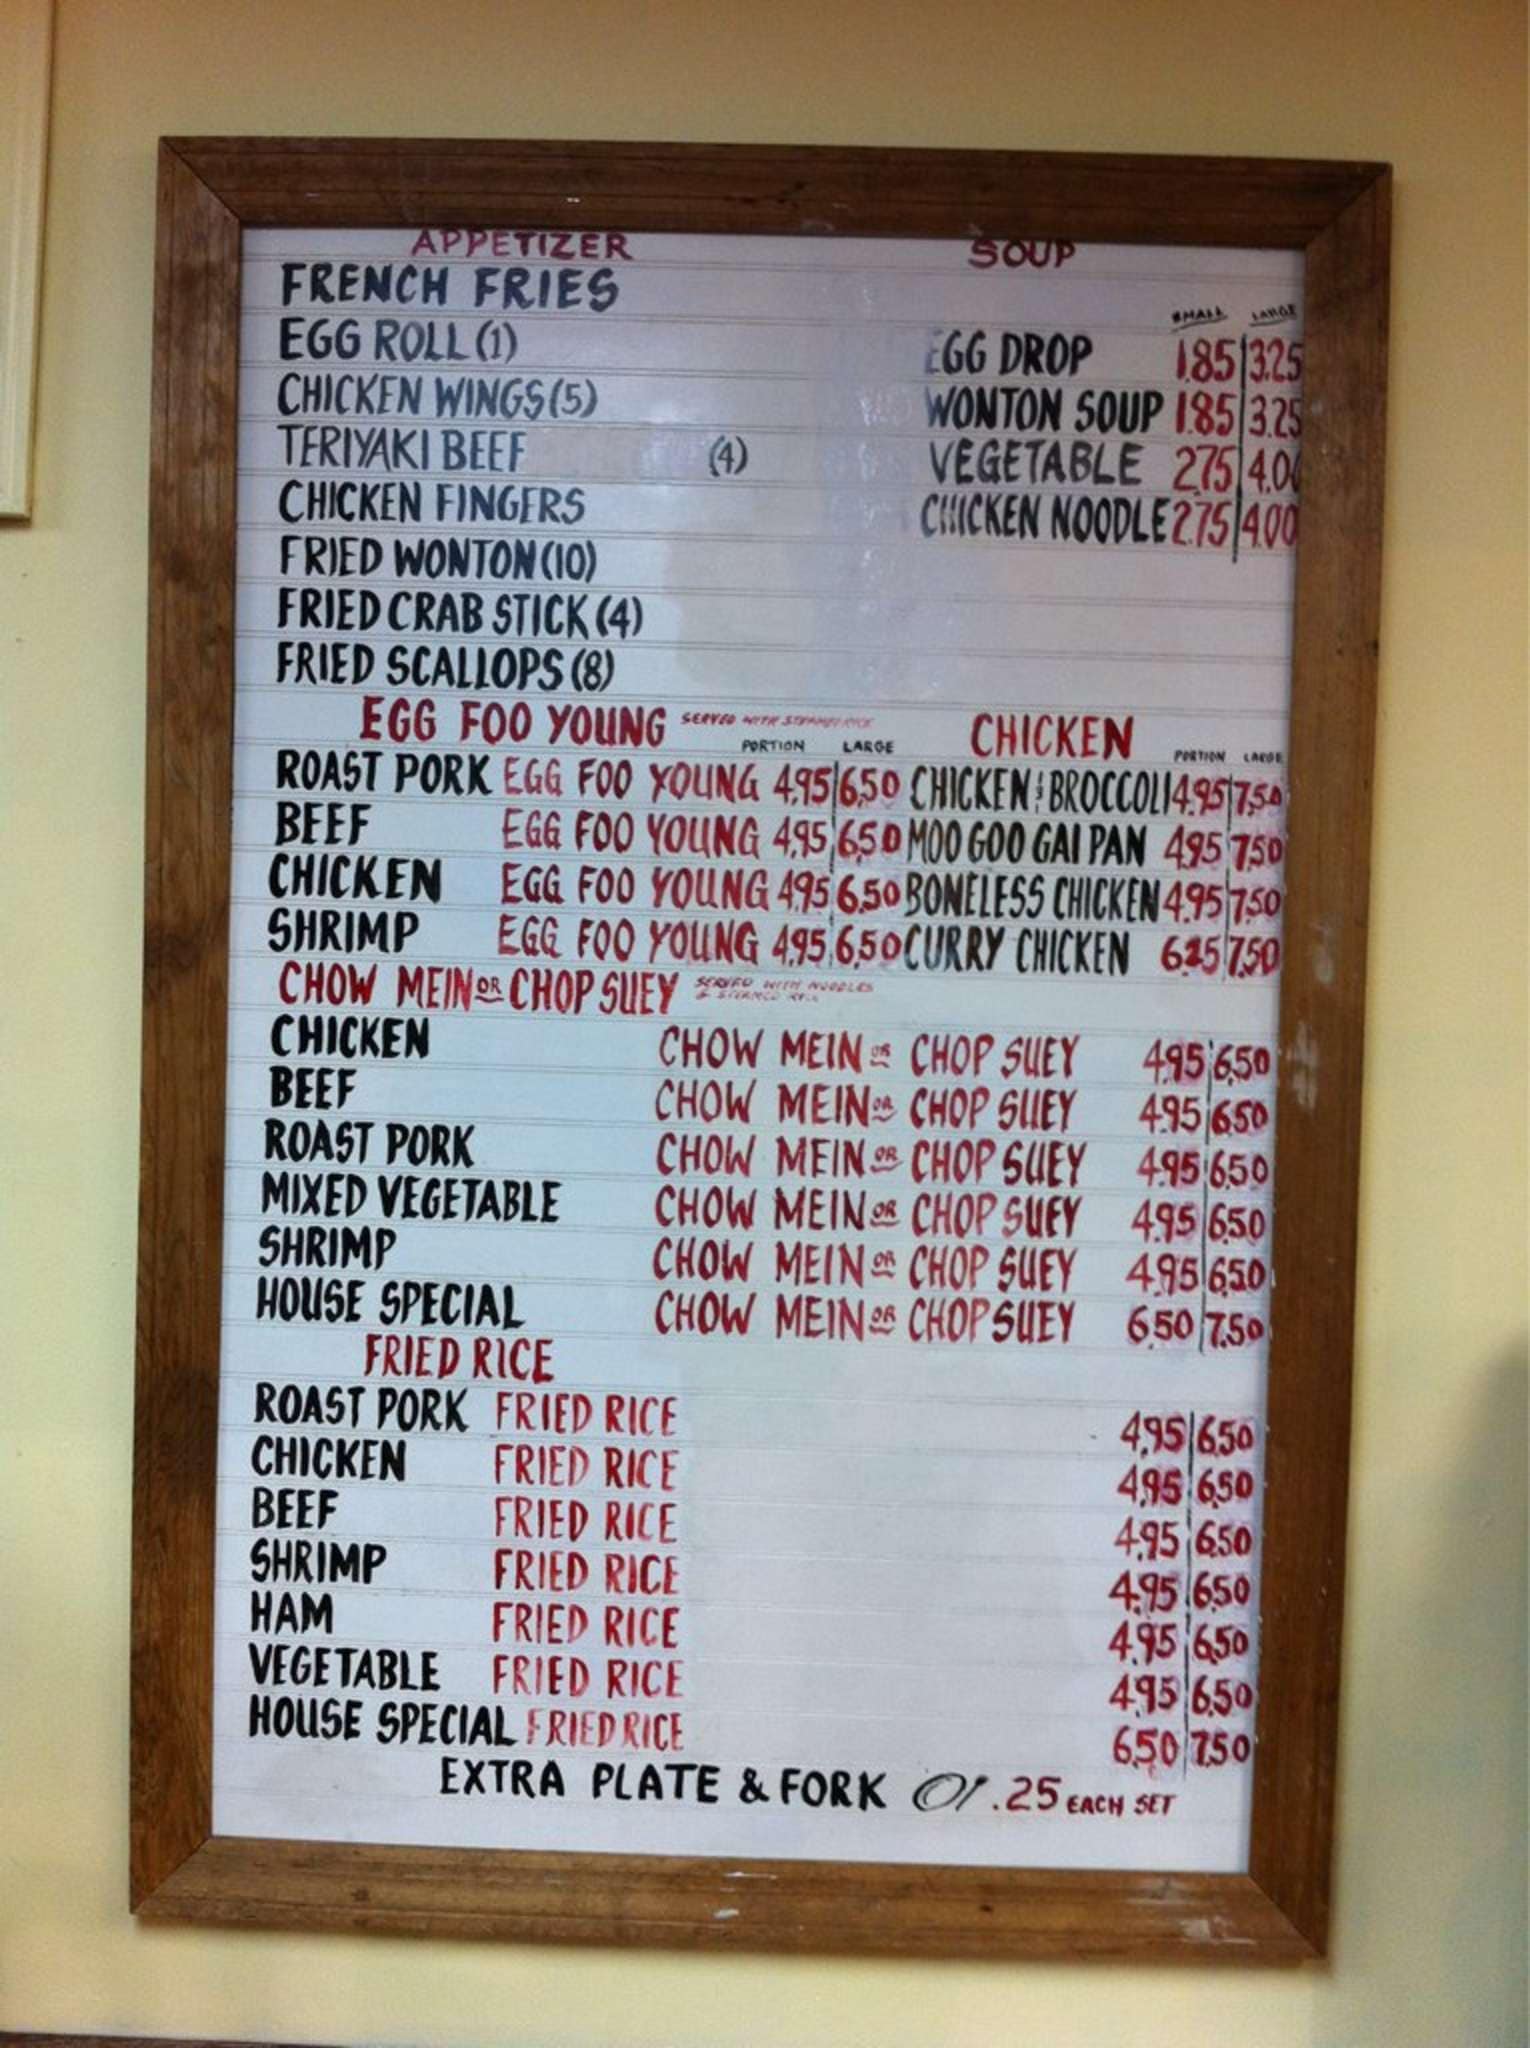 APPETIZER
FRENCH FRIES
EGG ROLL (1)
CHICKEN WINGS (5)
TERIYAKI BEEF (4)
CHICKEN FINGERS
FRIED WONTON (10)
FRIED CRAB STICK (4)
FRIED SCALLOPS (8)
SOUP
SMALL LARGE
EGG DROP 1.85 3.25
WONTON SOUP 1.85 3.25
VEGETABLE 2.75 4.00
CHICKEN NOODLE 2.75 4.00
EGG FOO YOUNG SERVED WITH STEAMED RICE
PORTION LARGE
ROAST PORK EGG FOO YOUNG 4.95 6.50
BEEF EGG FOO YOUNG 4.95 6.50
CHICKEN EGG FOO YOUNG 4.95 6.50
SHRIMP EGG FOO YOUNG 4.95 6.50
CHICKEN
PORTION LARGE
CHICKEN & BROCCOLI 4.95 7.50
MOO GOO GAI PAN 4.95 7.50
BONELESS CHICKEN 4.95 7.50
CURRY CHICKEN 7.50
CHOW MEIN OR CHOP SUEY SERVED WITH NOODLES
& STEAMED RICE
CHICKEN CHOW MEIN OR CHOP SUEY 4.95 6.50
BEEF CHOW MEIN OR CHOP SUEY 4.95 6.50
ROAST PORK CHOW MEIN OR CHOP SUEY 4.95 6.50
MIXED VEGETABLE CHOW MEIN OR CHOP SUEY 4.95 6.50
SHRIMP CHOW MEIN OR CHOP SUEY 4.95 6.50
HOUSE SPECIAL CHOW MEIN OR CHOP SUEY 6.50 7.50
FRIED RICE
ROAST PORK FRIED RICE 4.95 6.50
CHICKEN FRIED RICE 4.95 6.50
BEEF FRIED RICE 4.95 6.50
SHRIMP FRIED RICE 4.95 6.50
HAM FRIED RICE 4.95 6.50
VEGETABLE FRIED RICE 4.95 6.50
HOUSE SPECIAL FRIED RICE 6.50 7.50
EXTRA PLATE & FORK .25 EACH SET